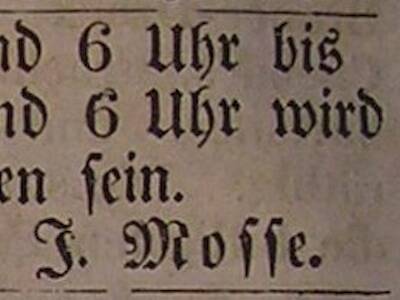 nd 6 Uhr bis
nd 6 Uhr wird
en sein.
J. Mosse.